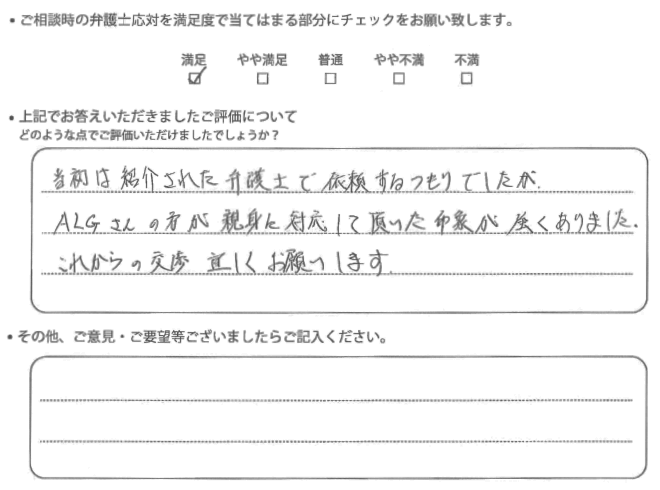 ・ご相談時の弁護士応対を満足度で当てはまる部分にチェックをお願い致します。
満足 やや満足 普通 やや不満 不満
☑ ☐ ☐ ☐ ☐
・上記でお答えいただきましたご評価について
どのような点でご評価いただけましたでしょうか？
当初は紹介された弁護士で依頼するつもりでしたが、
ALGさんの方が親身に対応して頂いた印象が強くありました。
これからの交渉宜しくお願いします。
・その他、ご意見・ご要望等ございましたらご記入ください。